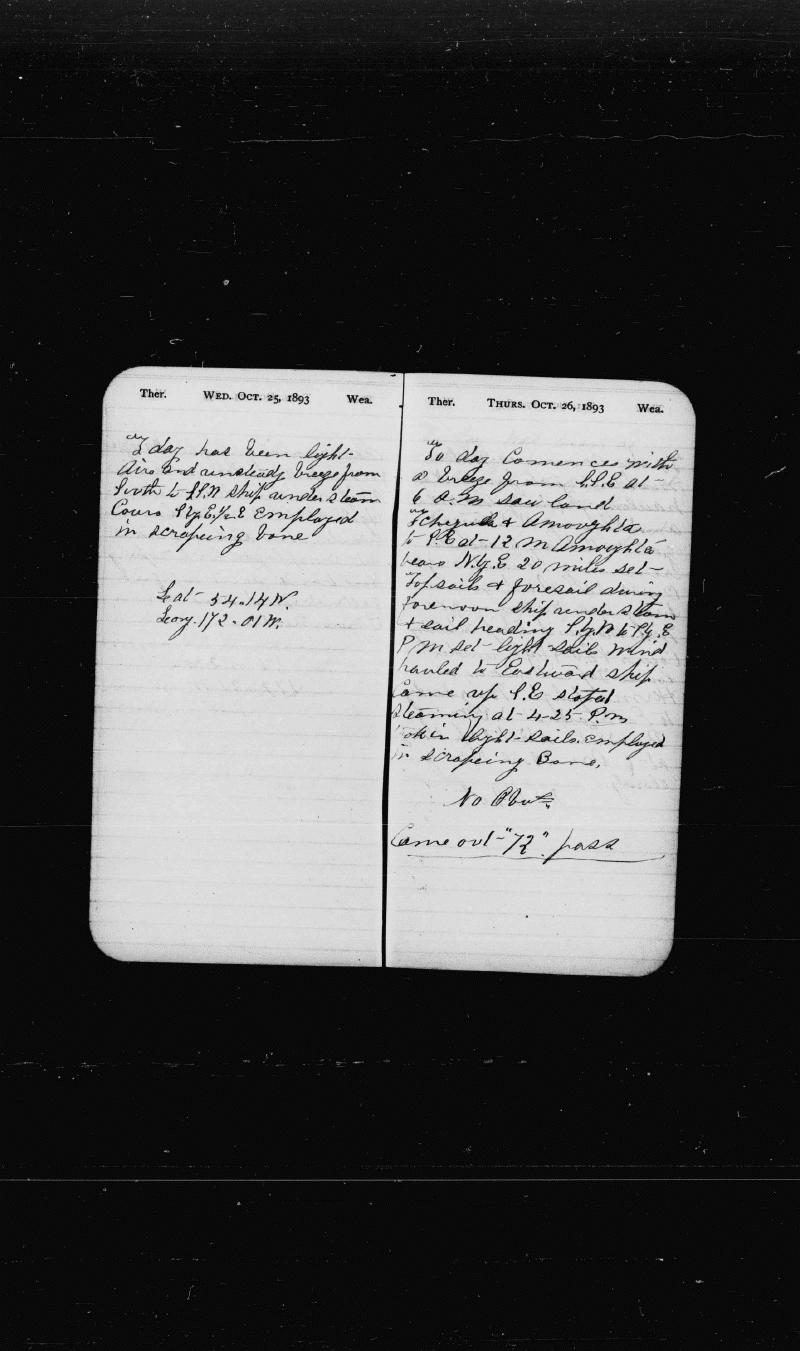 Ther. WED. OCT. 25, 1893 Wea.
To day has been light
Airs and unsteady breeze from
South to S.S.W ship under steam
Cours S by E.½.E Employed
in scrapeing bone
Lat 54.14 N.
Long. 172.01 W.
Ther. THURS. OCT. 26, 1893 Wea.
To day Comences with
a breeze from S.S.E at
6 A.M saw land
& Amoughta
to S.E at 12 M Amoughta
bears N.by.E 20 miles set
Topsails & foresail during
forenoon ship under steam
& sail heading S.by.W to S.by.E
P M set light sails wind
hauled to Eastward ship
Came up S.E stoped
steaming at 4-25 P.m
tok in light sails. employed
in scrapeing Bone,
No Obs
Came out "72" pass